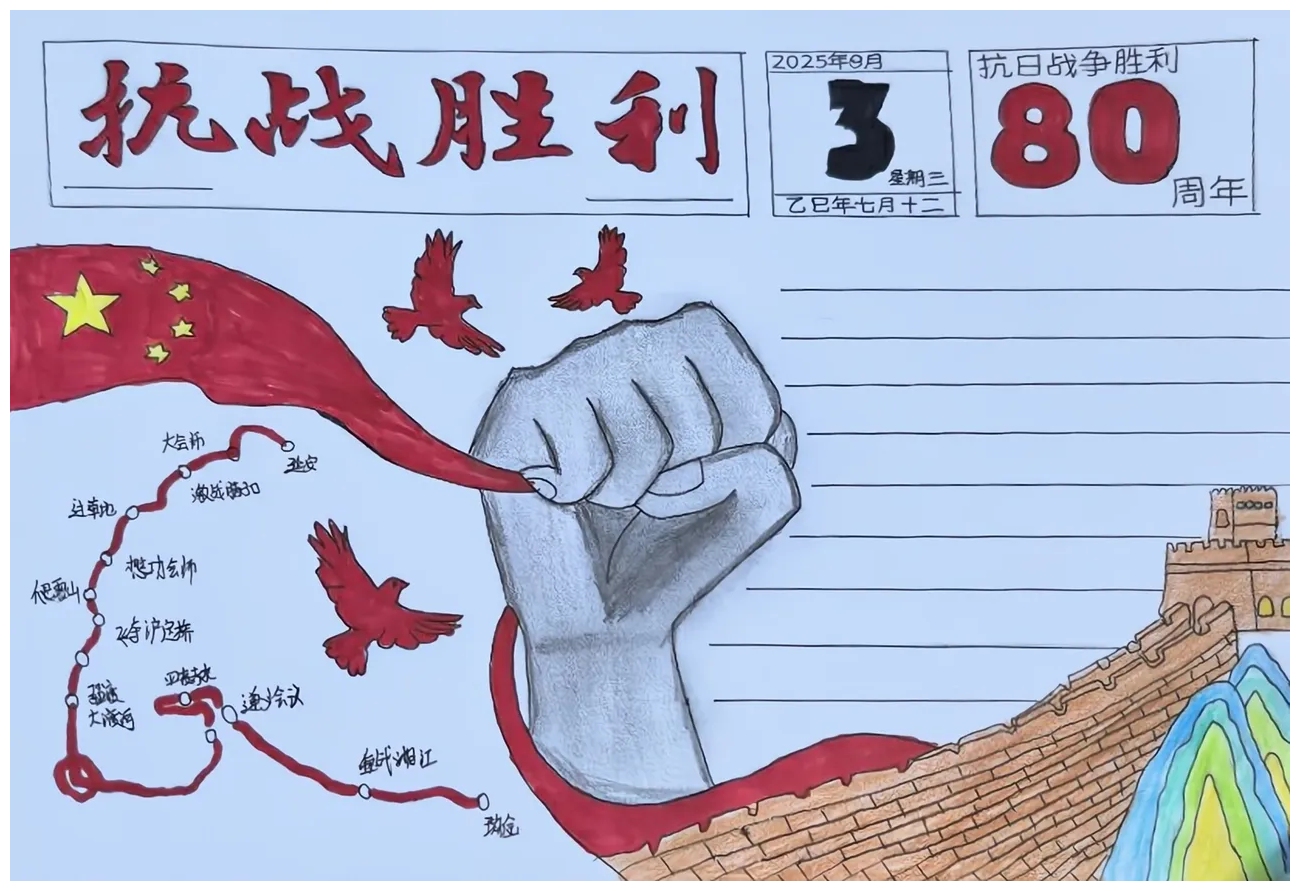 抗战胜利
2025年9月
3
星期三
乙巳年七月十二
抗日战争胜利
80
周年
大会师
延安
激战腊子口
过草地
懋功会师
爬雪山
飞夺泸定桥
四渡赤水
强渡
大渡河
遵义会议
血战湘江
瑞金